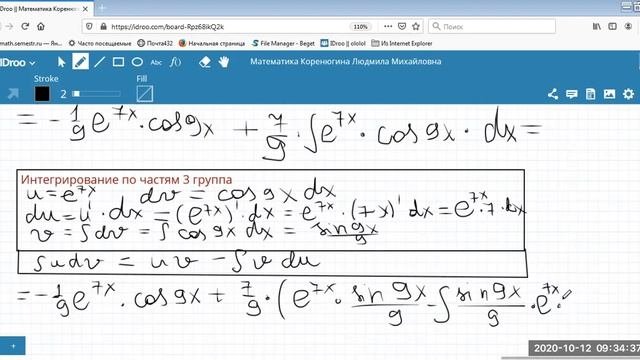 IDroo || Математика Коренюгин
https://idroo.com/board-Rpz68ikQ2k
110%
Поиск
math.semestr.ru
Часто посещаемые
Почта432
Начальная страница
File Manager - Beget
IDroo || ololol
Из Internet Explorer
IDroo
Abc
f(x)
Математика Коренюгина Людмила Михайловна
Stroke
Fill
2
= -1/9 e^7x · cos 9x + 7/9 · ∫ e^7x · cos 9x · dx =
Интегрирование по частям 3 группа
u = e^7x dv = cos 9x dx
du = u' · dx = (e^7x)' dx = e^7x · (7x)' dx = e^7x · 7 · dx
v = ∫ dv = ∫ cos 9x dx = sin 9x/9
∫ u dv = u v - ∫ v du
= -1/9 e^7x · cos 9x + 7/9 · (e^7x · sin 9x/9 - ∫ sin 9x/9 · e^7x ·
+
2020-10-12 09:34:37